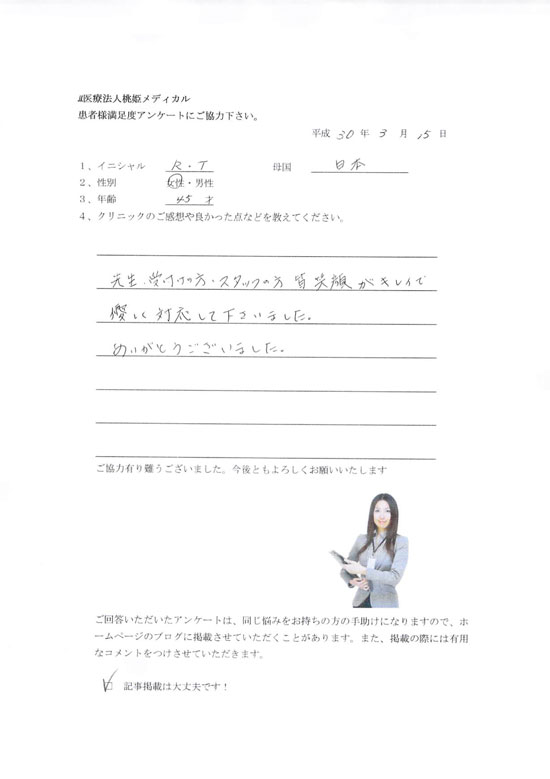 医療法人桃姫メディカル
患者様満足度アンケートにご協力下さい。
平成 30 年 3 月 15 日
1、イニシャル R・T 母国 日本
2、性別 女性・男性
3、年齢 45 才
4、クリニックのご感想や良かった点などを教えてください。
先生、受付の方・スタッフの方 皆 笑顔がキレイで
優しく対応して下さいました。
ありがとうございました。
ご協力有り難うございました。今後ともよろしくお願いいたします
ご回答いただいたアンケートは、同じ悩みをお持ちの方の手助けになりますので、ホ
ームページのブログに掲載させていただくことがあります。また、掲載の際には有用
なコメントをつけさせていただきます。
☑ 記事掲載は大丈夫です！